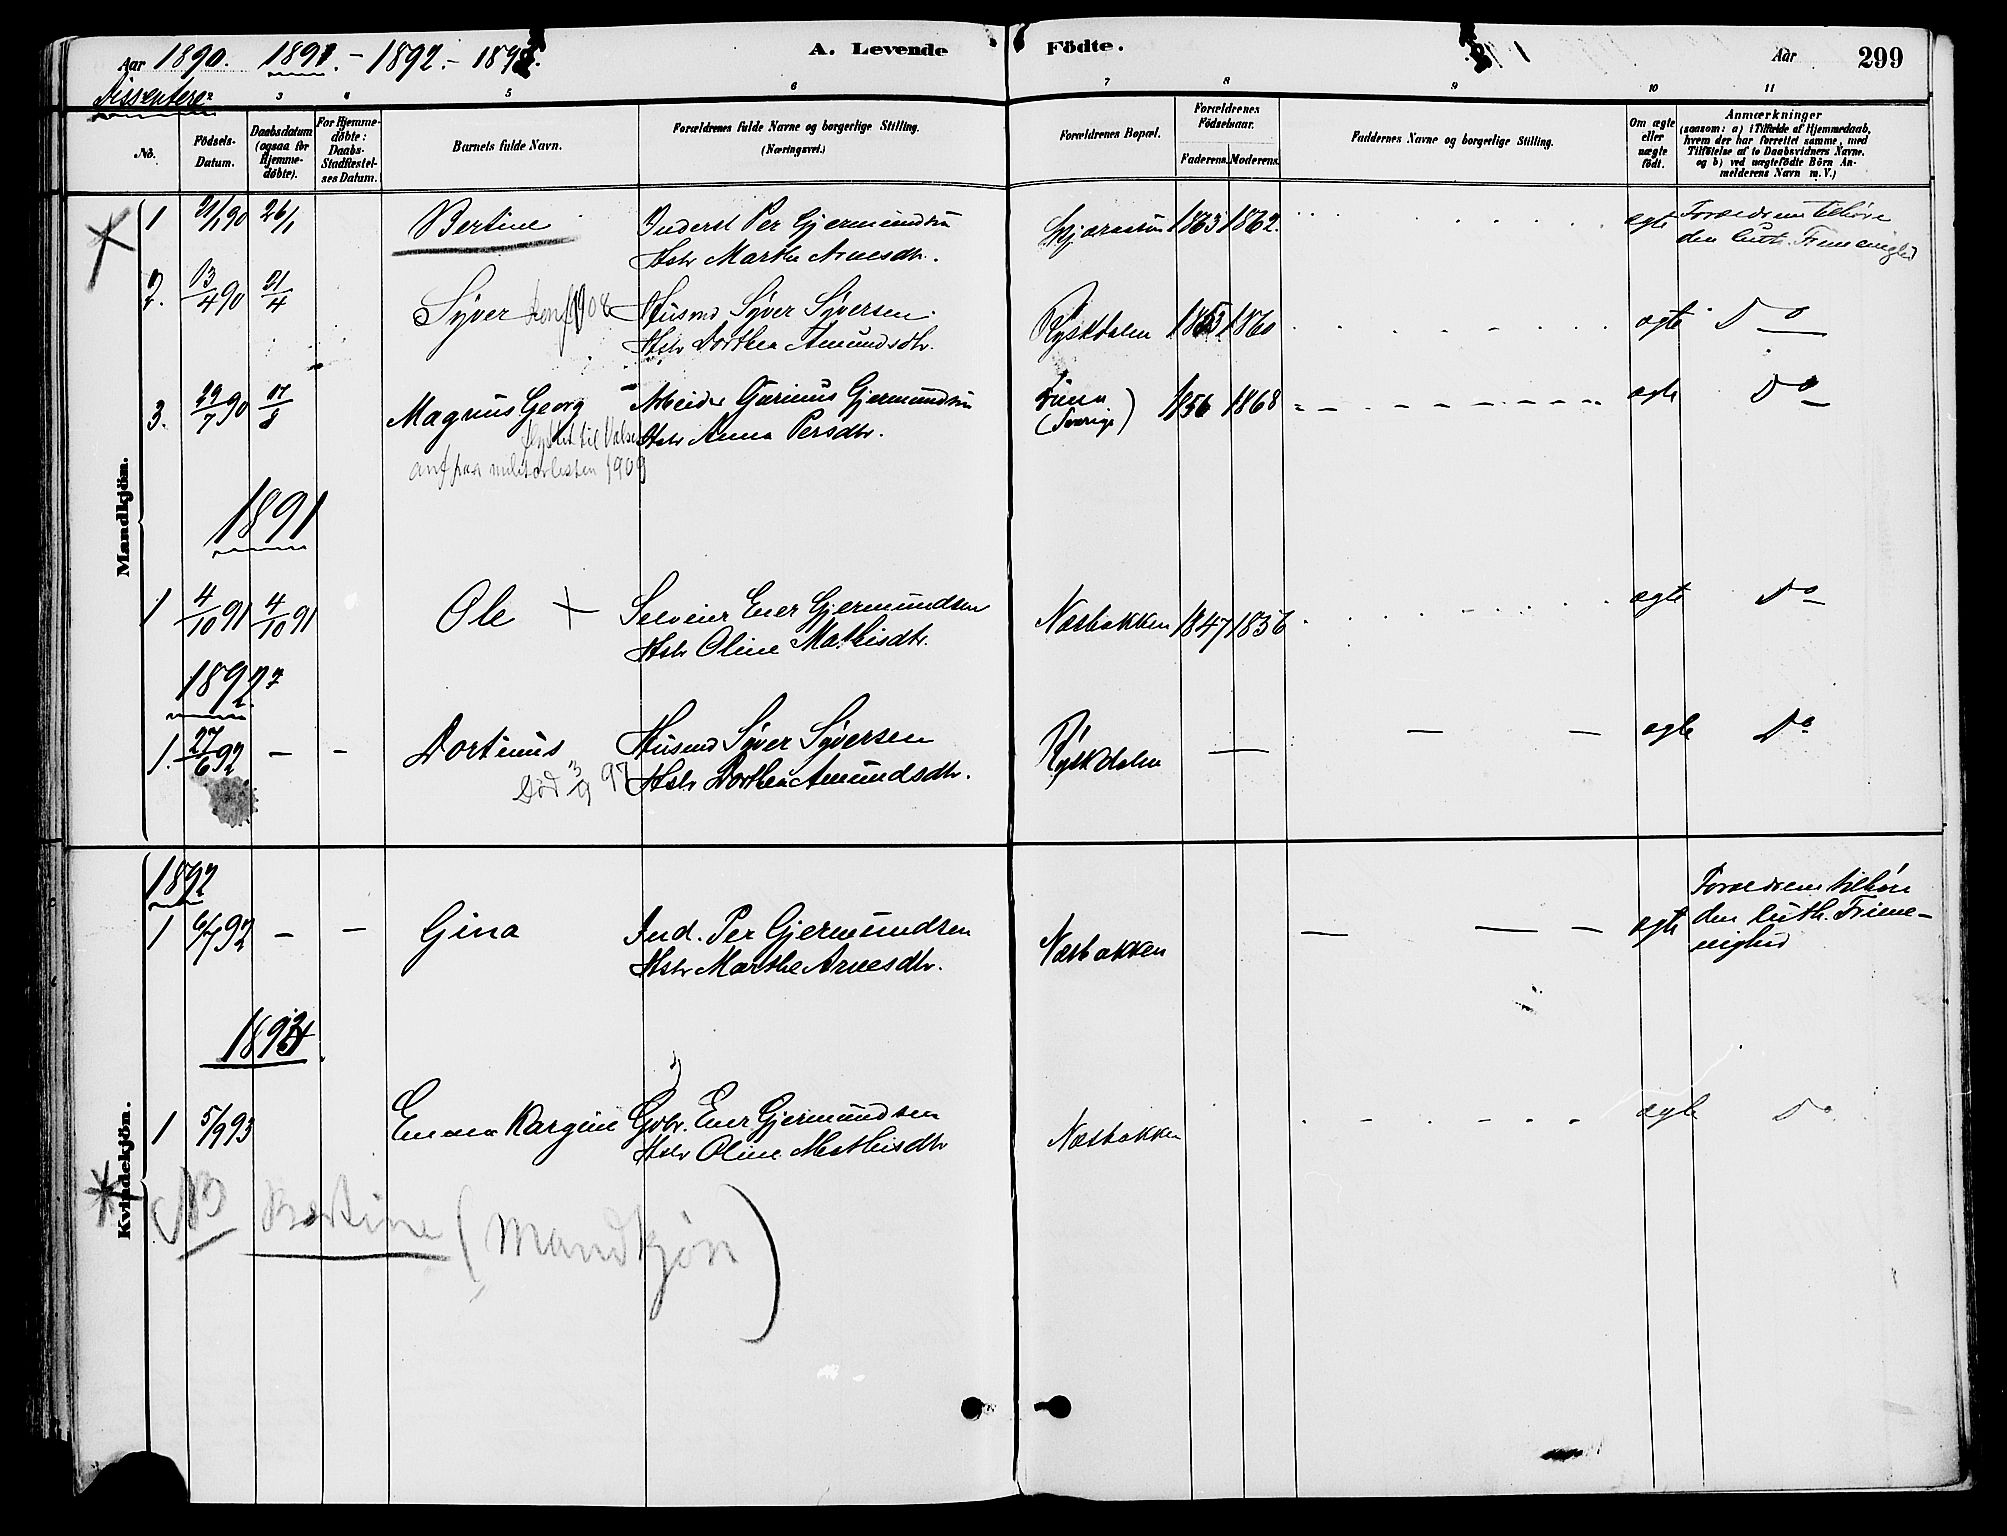 Aar 1890. 1891. - 1892. - 1893.
A. Levende Födte.
Aar 299
Dissentere
3 4 5 6 7 8 9 10 11
No.
Födsels-Datum.
Daabsdatum (ogsaa for Hjemmedöbte).
For Hjemmedöbte: Daabs-Stadfæstelses Datum.
Barnets fulde Navn.
Forældrenes fulde Navne og borgerlige Stilling. (Næringsvei.)
Forældrenes Bopæl.
Forældrenes Födselsaar.
Faderens. Moderens.
Faddernes Navne og borgerlige Stilling.
Om ægte eller uægte födt.
Anmærkninger
(saasom: a) i Tilfælde af Hjemmedaab, hvem der har forrettet samme, med Tilföielse af to Daabsvidners Navne, og b) ved uægtefödte Börn Anmelderens Navn m. V.)
Mandkjön.
1 21/1 90 26/1 Bertine Inderst Per Gjermundsen 1863 1862. ægte Forældrene tilhöre
Hstr Marthe Arnesdtr. den luth. Frimenighed
2. 13/4 90 21/4 Syver konf 1908 Husmd Syver Syversen Ryskdalen 1853 1860 ægte Do
Hstr Dorthea Amundsdtr.
3. 29/7 90 17/8 Magnus Georg Arbeider Garinus Gjermundsen (Sverige) 1856 1868 ægte Do
flyttet til Hstr Anna Persdtr.
anf paa militærlisten 1909
1891
1 4/10 91 4/10 91 Ole + Selveier Ener Gjermundsen Næsbakken 1847 1856 ægte Do
Hstr Oline Mathisdtr.
1892
1. 27/6 92 - - Dortinus Husmd Syver Syversen Ryskdalen — — — ægte Do
Död 3/9 97 Hstr Dorthea Amundsdtr.
Kvindekjön.
1892
1 6/7 92 - - Gina Ind. Per Gjermundsen Næsbakken — — — ægte Forældrene tilhöre
Hstr Marthe Arnesdtr. den luth. Frime-
nighed
1893
1 5/9 93 Emma Kargine Gbr. Ener Gjermundsen Næsbakken ægte Do
Hstr Oline Mathisdtr
NB Bertine (Mandkjön)